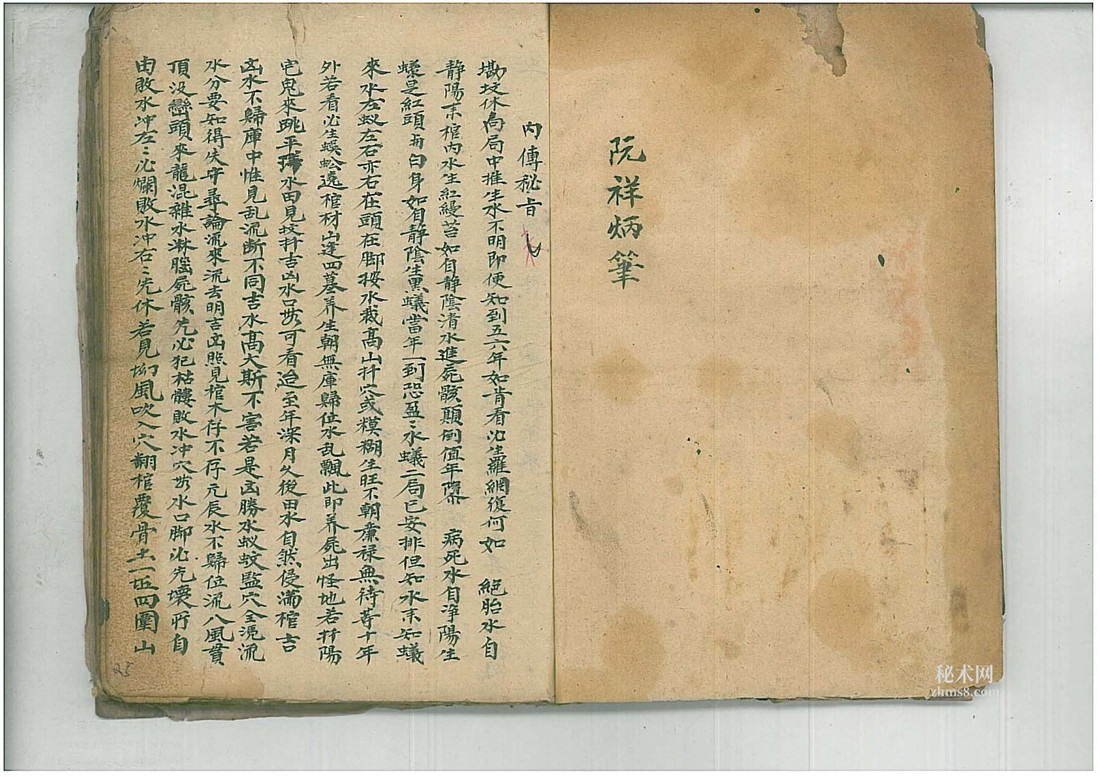 阮祥炳筆
內傳秘旨
勘坟休咎局中推生水不明即便知到五六年如肯看必生羅網復何如 絕胎水自
静陽来棺內水生紅縵苔如自静陰清水進屍骸顛倒值年際 病死水自淨陽生
蟻是紅頭白身如自静陰生黑蟻當年一到恐盈〻水蟻一局已安排但知水来知蟻
來水左蟻左右亦右在頭在脚按水裁高山扦穴或糢糊生旺不朝廉禄無待等十年
外若看必生蜈蚣遶棺材山逢四墓养生朝無庫歸位水乱飄此即养屍出怪地若扦陽
宅鬼來跳平水田見坟扦吉凶水口可看迨至年深月久後田水自然侵满棺吉
凶水不歸庫中惟見乱流断不同吉水髙大斯不害若是凶勝水蚁蚊監穴全流
水分要如得失守尋論流來流去明吉凶照見棺木存不存元辰水不歸位流八風貫
頂没巒頭來龍混雜水淋腦屍骸先必犯枯髏敗水冲穴水口脚必先壞所自
由敗水冲左〻必爛敗水冲右〻先休若見風吹入穴翻棺覆骨土一四圍山
25
秘术网
zhms8.com